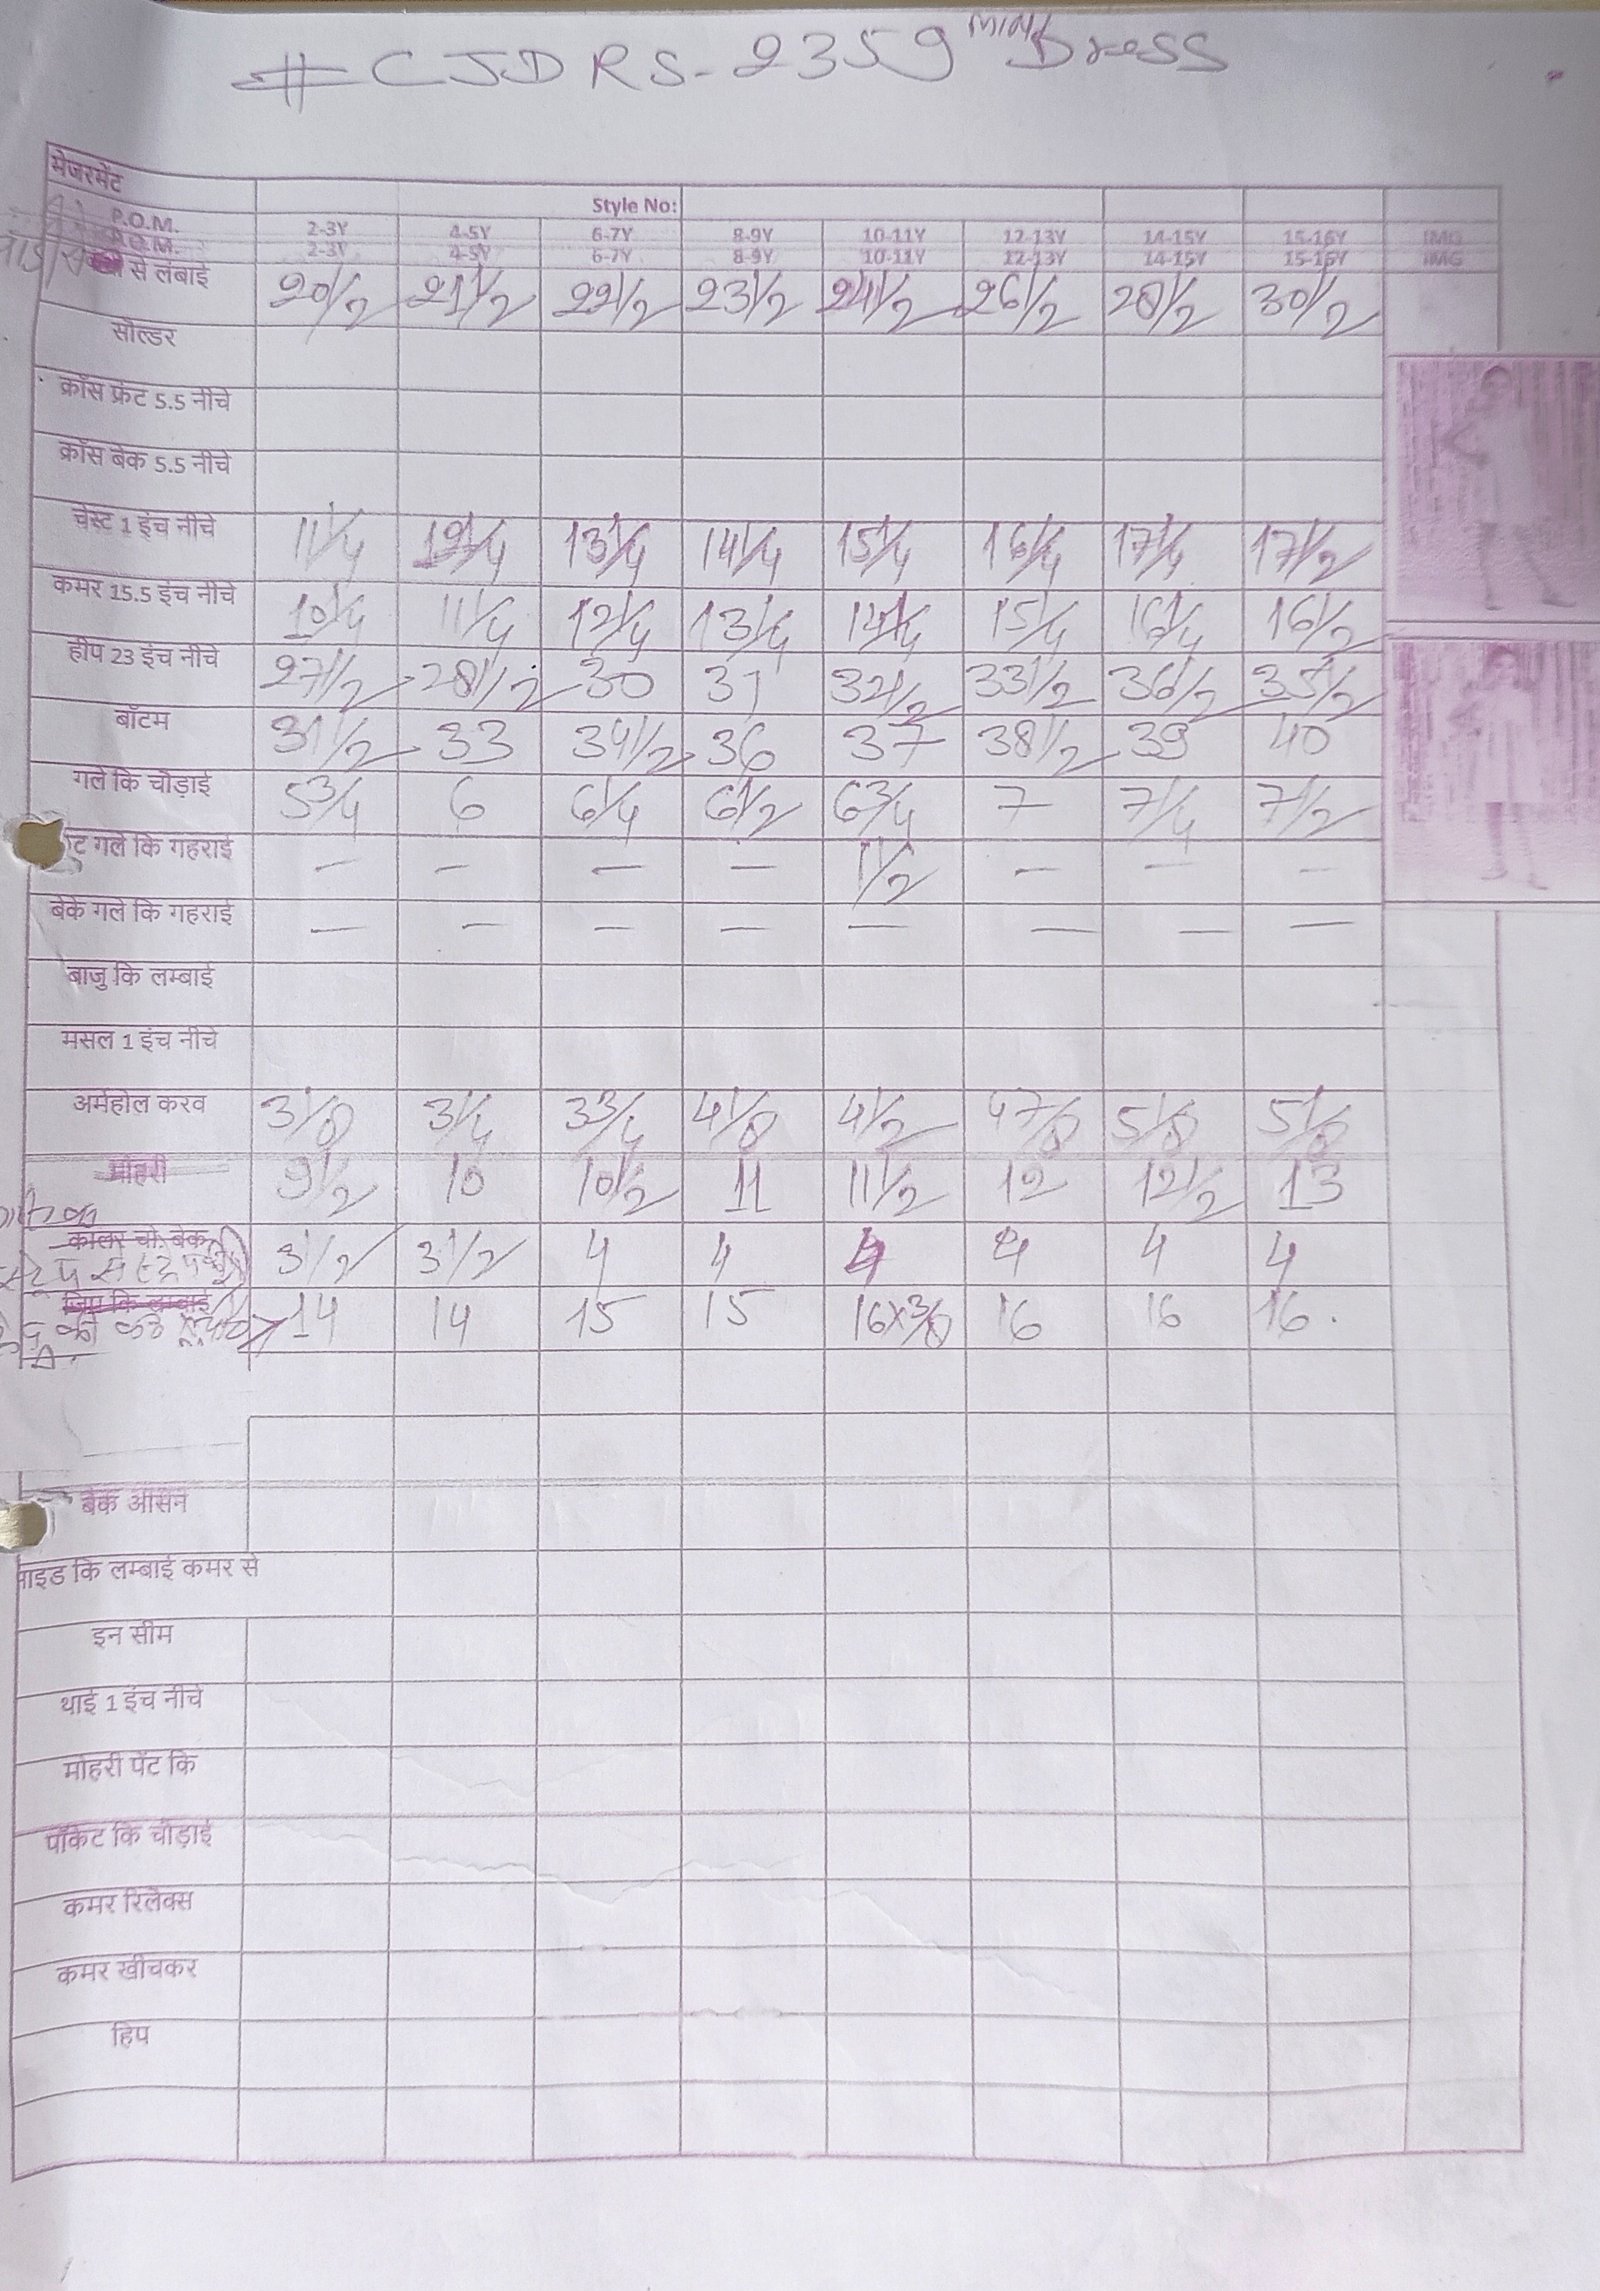 # CJDRS-2359 Dress
मेजरमेंट
Style No:
P.O.M. 2-3Y 4-5Y 6-7Y 8-9Y 10-11Y 12-13Y 14-15Y 15-16Y IMG
P.O.M. 2-3Y 4-5Y 6-7Y 8-9Y 10-11Y 12-13Y 14-15Y 15-16Y IMG
से लंबाई 20 1/2 21 1/2 22 1/2 23 1/2 24 1/2 26 1/2 28 1/2 30 1/2
सोल्डर
क्रॉस फ्रंट 5.5 नीचे
क्रॉस बेक 5.5 नीचे
चेस्ट 1 इंच नीचे 11 1/4 12 1/4 13 1/4 14 1/4 15 1/4 16 1/4 17 1/4 17 1/2
कमर 15.5 इंच नीचे 10 1/4 11 1/4 12 1/4 13 1/4 14 1/4 15 1/4 16 1/4 16 1/2
हीप 23 इंच नीचे 27 1/2 28 1/2 30 31 32 1/2 33 1/2 36 1/2 35 1/2
बॉटम 31 1/2 33 34 1/2 36 37 38 1/2 39 40
गले कि चौड़ाई 5 3/4 6 6 1/4 6 1/2 6 3/4 7 7 1/4 7 1/2
गले कि गहराई — — — — 1 1/2 — — —
बेके गले कि गहराई — — — — — — — —
बाजु कि लम्बाई
मसल 1 इंच नीचे
अर्महोल करव 3 1/8 3 1/4 3 3/4 4 1/8 4 1/2 4 7/8 5 1/8 5 1/8
मोहरी 9 1/2 10 10 1/2 11 11 1/2 12 12 1/2 13
कालर चौ. बेक 3 1/2 3 1/2 4 4 4 4 4 4
जिप कि लम्बाई 14 14 15 15 16x3/8 16 16 16.
बेक आसन
साइड कि लम्बाई कमर से
इन सीम
थाई 1 इंच नीचे
मोहरी पेंट कि
पॉकेट कि चौड़ाई
कमर रिलेक्स
कमर खीचकर
हिप